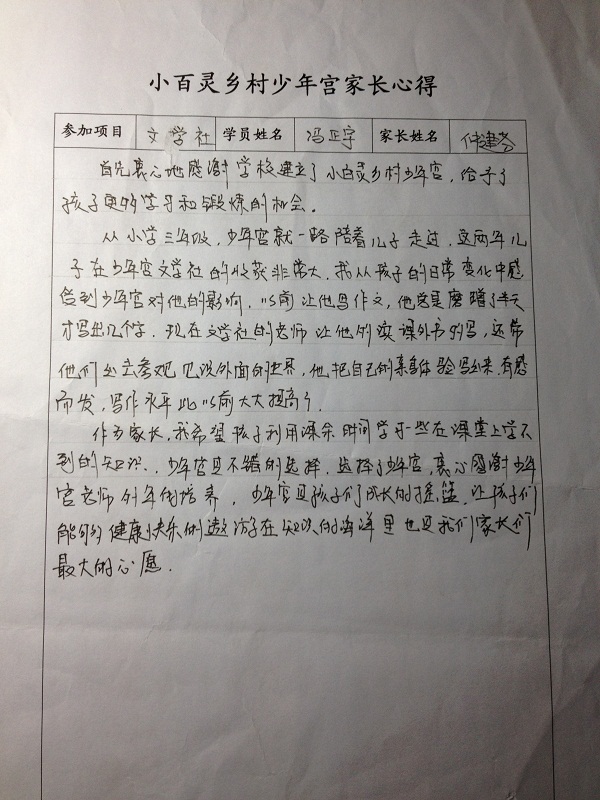 小百灵乡村少年宫家长心得
参加项目 文学社 学员姓名 冯正宇 家长姓名 仲建芬
首先衷心地感谢学校建立了小百灵乡村少年宫，给予了
孩子更多学习和锻炼的机会。
从小学三年级，少年宫就一路陪着儿子走过，这两年儿
子在少年宫文学社的收获非常大。我从孩子的日常变化中感
受到少年宫对他的影响。以前让他写作文，他总是磨蹭了半天
才写出几个字。现在文学社的老师让他们读课外书的写，还带
他们出去参观见识外面的世界，他把自己的亲身体验写出来。有感
而发，写作水平比以前大大提高了。
作为家长，我希望孩子利用课余时间学习一些在课堂上学不
到的知识，少年宫是不错的选择。选择了少年宫，衷心感谢少年
宫老师多年的培养。少年宫是孩子们成长的摇篮，让孩子们
能够健康快乐的遨游在知识的海洋里也是我们家长们
最大的心愿.